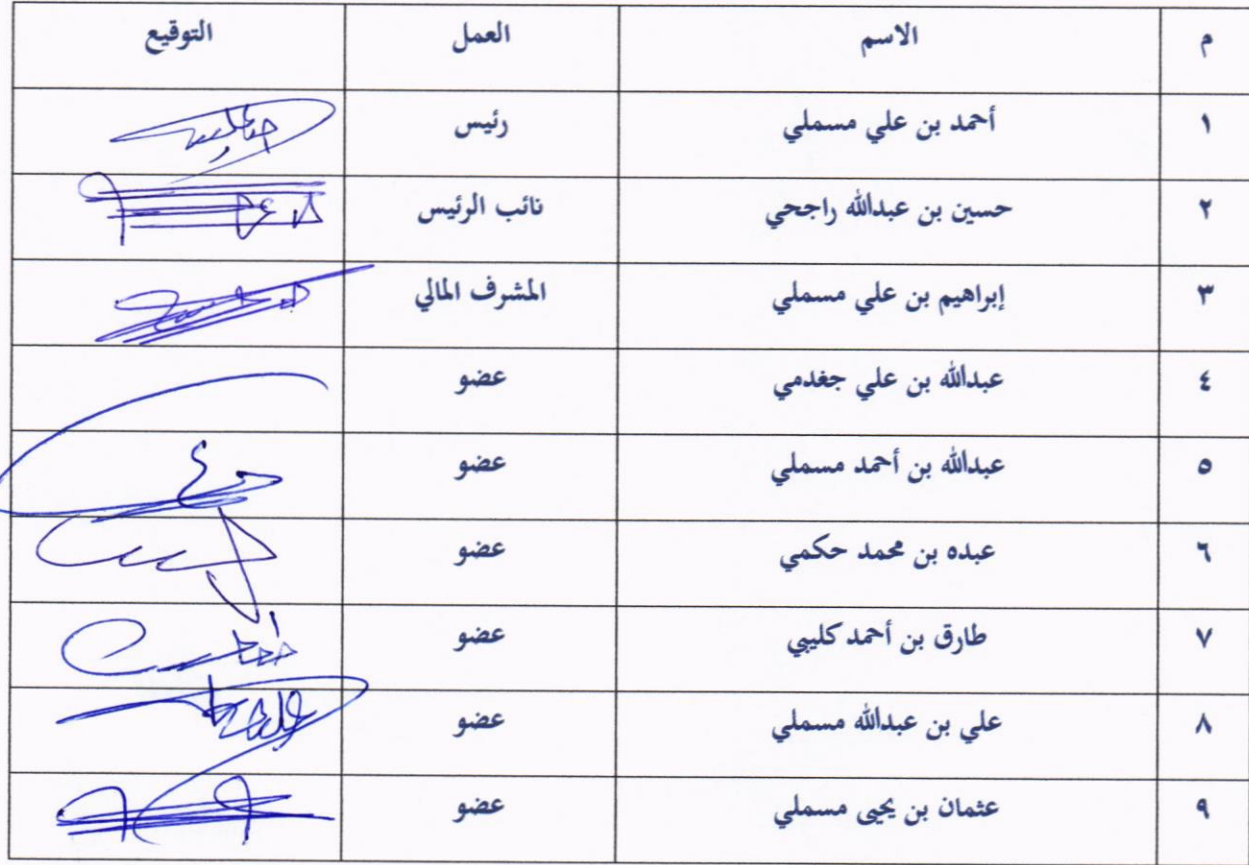 م الاسم العمل التوقيع
١ أحمد بن علي مسملي رئيس
٢ حسين بن عبدالله راجحي نائب الرئيس
٣ إبراهيم بن علي مسملي المشرف المالي
٤ عبدالله بن علي جغدمي عضو
٥ عبدالله بن أحمد مسملي عضو
٦ عبده بن محمد حكمي عضو
٧ طارق بن أحمد كليبي عضو
٨ علي بن عبدالله مسملي عضو
٩ عثمان بن يحيى مسملي عضو